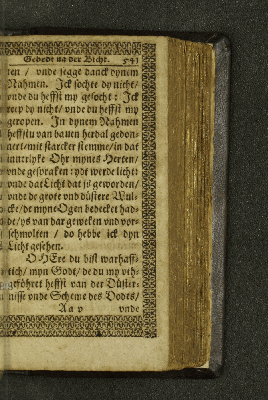 Gebedt na der Bicht. 591
nen / vnde segge danck dynem
Nahmen. Jck sochte dy nicht/
vnde du heffst my gesocht: Jck
reep dy nicht/ vnde du heffst my
geropen. In dynem Nahmen
heffstu van bauen herdal gedon-
nert/ mit starcker stemme/ in dat
innerlyke Ohr mynes Herten/
vnde gesproken: ydt werde licht:
vnde dat Licht dat is geworden/
vnde de grote vnd düstere Wul-
cke/ de myne Ogen bedecket had-
de/ ys van dar geweken vnd vor-
schmolten / do hebbe ick dyn
Licht gesehen.
O HEre du bist warhaff-
tich/ myn Godt/ de du my vth-
geföhret heffst van der Düster-
nisse vnde Scheme des Dodes/
Aa v vnde